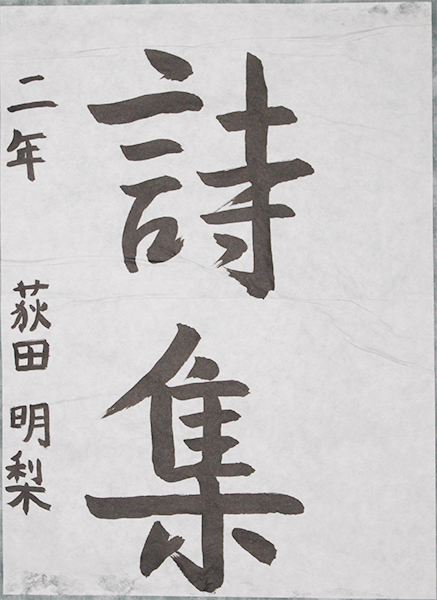 詩集
二年 荻田 明梨